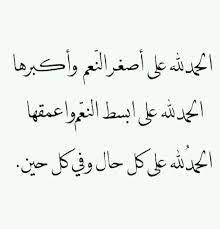 الحمدلله على أصغر النّعم وأكبرها
الحمدلله على ابسط النعّم واعمقها
الحمدُلله على كل حال وفي كل حين.